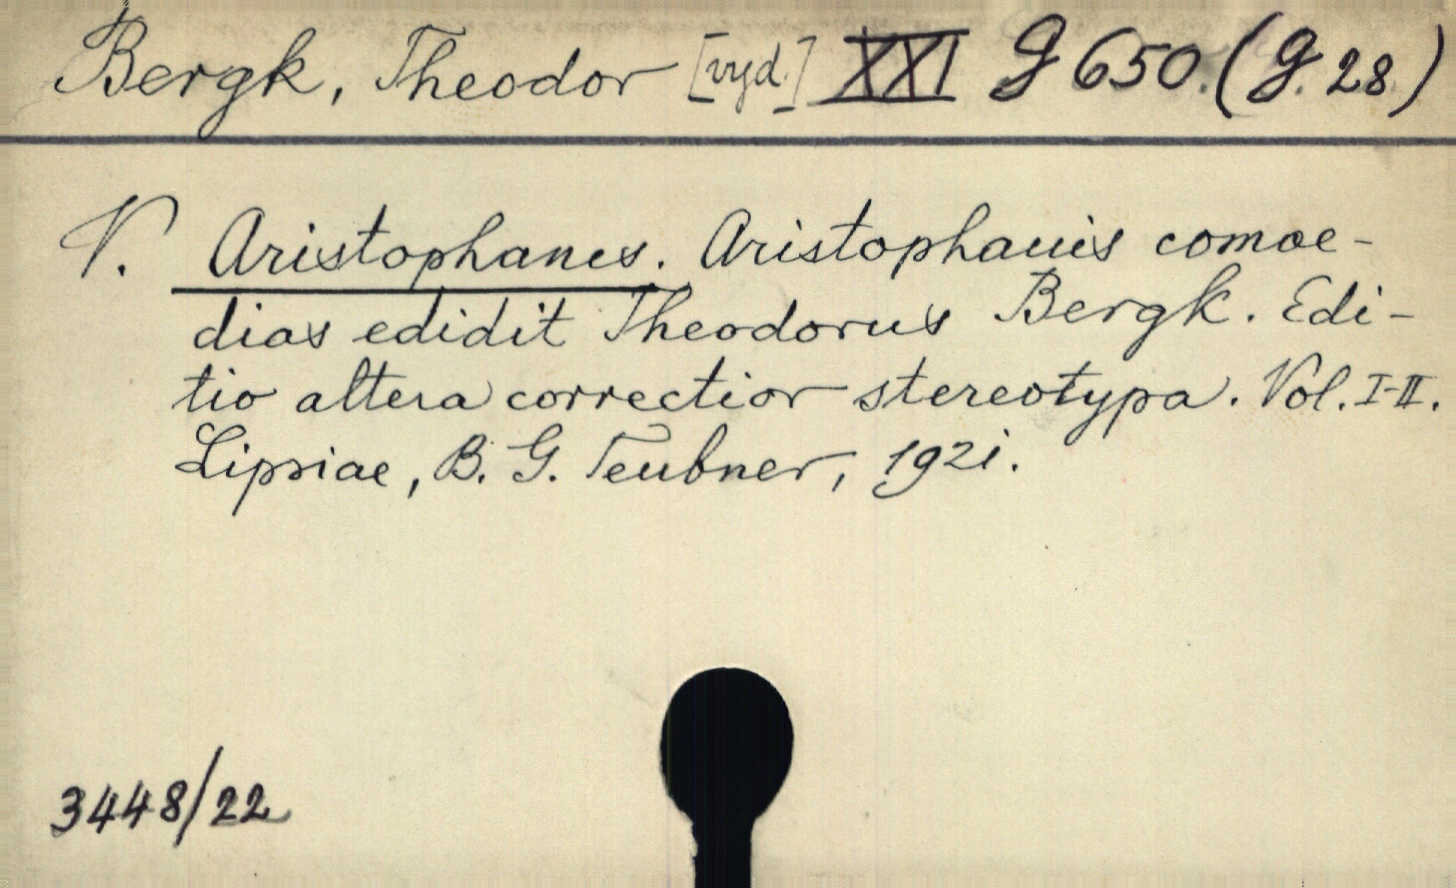 Bergk, Theodor [vyd.] XXI G 650. (G. 28)
V. Aristophanes. Aristophanis comoe-
dias edidit Theodorus Bergk. Edi-
tio altera correctior stereotypa. Vol. I-II.
Lipsiae, B. G. Teubner, 1921.
3448/22